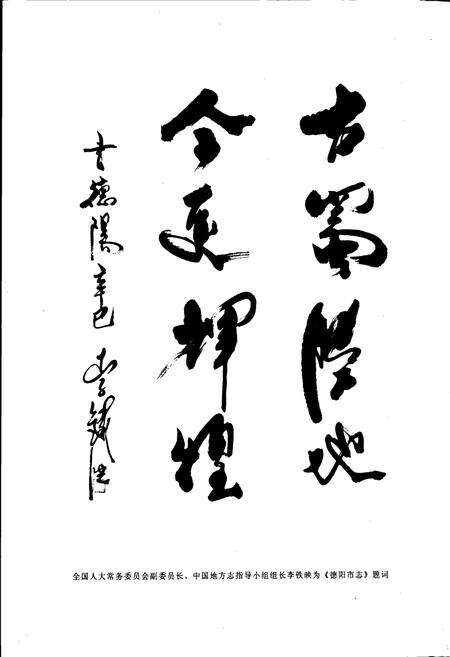 古蜀勝地
今更輝煌
德陽 辛巳 李鐵映
全国人大常务委员会副委员长、中国地方志指导小组组长李铁映为《德阳市志》题词